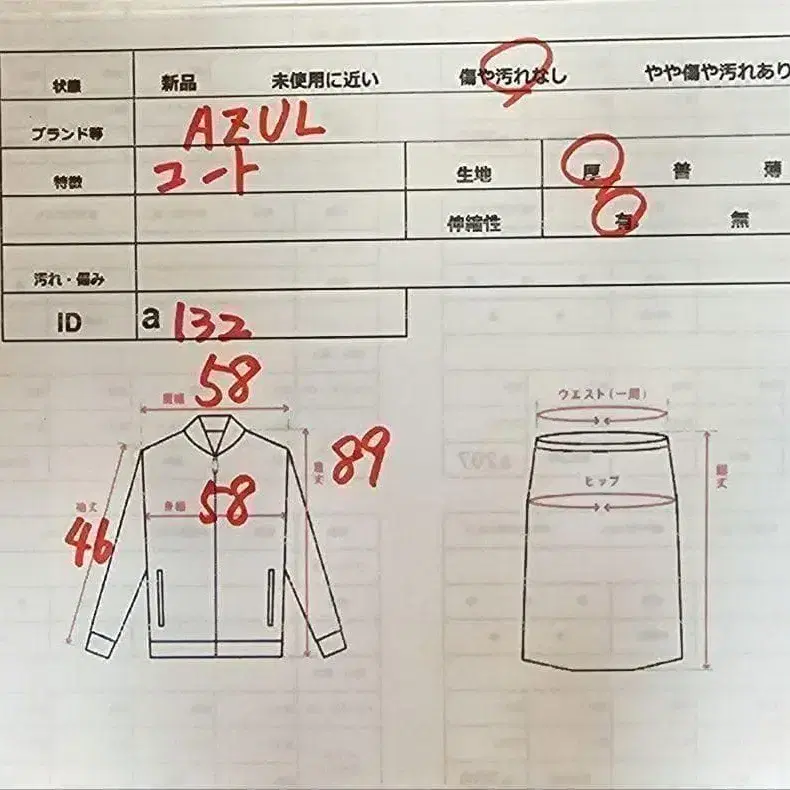 状態 新品 未使用に近い 傷や汚れなし やや傷や汚れあり
ブランド等 AZUL
特徴 コート 生地 厚 普 薄
伸縮性 有 無
汚れ・傷み
ID a 132
肩幅 58
着丈 89
袖丈 46
身幅 58
ウエスト(一周)
ヒップ
総丈